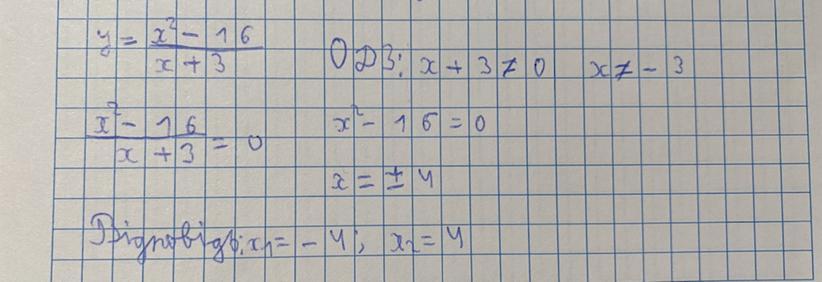 y = (x² - 16)/(x + 3) ОДЗ: x + 3 ≠ 0 x ≠ - 3
(x² - 16)/(x + 3) = 0 x² - 16 = 0
x = ± 4
Відповідь: x₁ = - 4; x₂ = 4